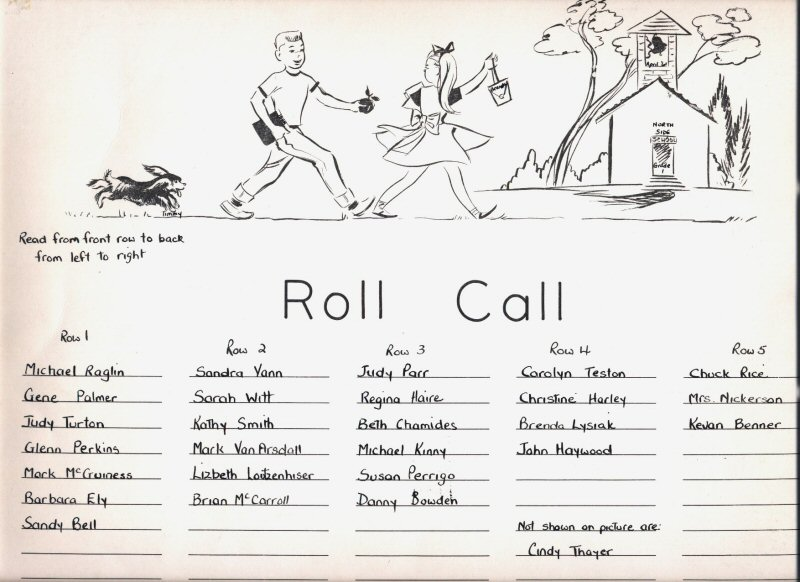 April 30
NORTH
SIDE
SCHOOL
Grade
1
Timmy
Read from front row to back
from left to right
Roll Call
Row 1
Michael Raglin
Gene Palmer
Judy Turton
Glenn Perkins
Mark McGuiness
Barbara Ely
Sandy Bell
Row 2
Sandra Vann
Sarah Witt
Kathy Smith
Mark VanArsdall
Lizbeth Loutzenhiser
Brian McCarroll
Row 3
Judy Parr
Regina Haire
Beth Chamides
Michael Kinny
Susan Perrigo
Danny Bowden
Row 4
Carolyn Teston
Christine Harley
Brenda Lysiak
John Haywood
Not shown on picture are:
Cindy Thayer
Row 5
Chuck Rice
Mrs. Nickerson
Kevan Benner